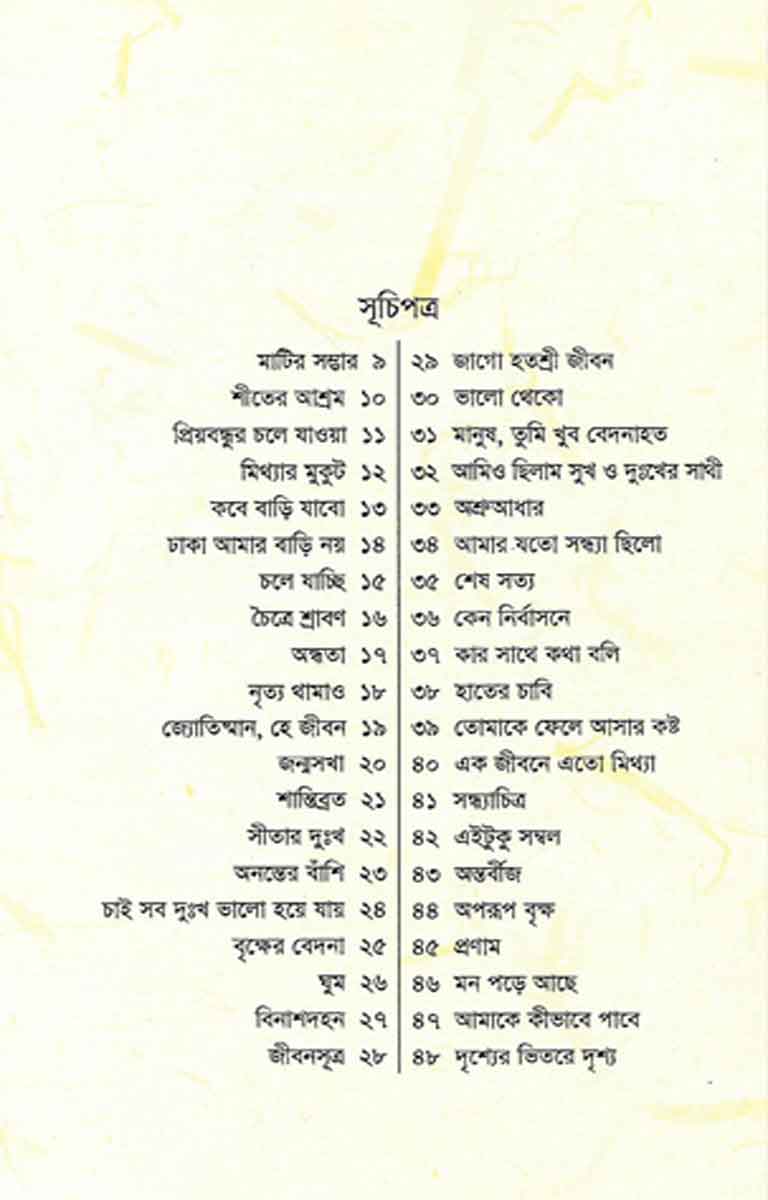 সূচিপত্র
মাটির সম্ভার ৯
শীতের আশ্রম ১০
প্রিয়বন্ধুর চলে যাওয়া ১১
মিথ্যার মুকুট ১২
কবে বাড়ি যাবো ১৩
ঢাকা আমার বাড়ি নয় ১৪
চলে যাচ্ছি ১৫
চৈত্রে শ্রাবণ ১৬
অন্ধতা ১৭
নৃত্য থামাও ১৮
জ্যোতিষ্মান, হে জীবন ১৯
জন্মসখা ২০
শান্তিব্রত ২১
সীতার দুঃখ ২২
অনন্তের বাঁশি ২৩
চাই সব দুঃখ ভালো হয়ে যায় ২৪
বৃক্ষের বেদনা ২৫
ঘুম ২৬
বিনাশদহন ২৭
জীবনসূত্র ২৮
২৯ জাগো হতশ্রী জীবন
৩০ ভালো থেকো
৩১ মানুষ, তুমি খুব বেদনাহত
৩২ আমিও ছিলাম সুখ ও দুঃখের সাথী
৩৩ অশ্রুআধার
৩৪ আমার যতো সন্ধ্যা ছিলো
৩৫ শেষ সত্য
৩৬ কেন নির্বাসনে
৩৭ কার সাথে কথা বলি
৩৮ হাতের চাবি
৩৯ তোমাকে ফেলে আসার কষ্ট
৪০ এক জীবনে এতো মিথ্যা
৪১ সন্ধ্যাচিত্র
৪২ এইটুকু সম্বল
৪৩ অন্তর্বীজ
৪৪ অপরূপ বৃক্ষ
৪৫ প্রণাম
৪৬ মন পড়ে আছে
৪৭ আমাকে কীভাবে পাবে
৪৮ দৃশ্যের ভিতরে দৃশ্য